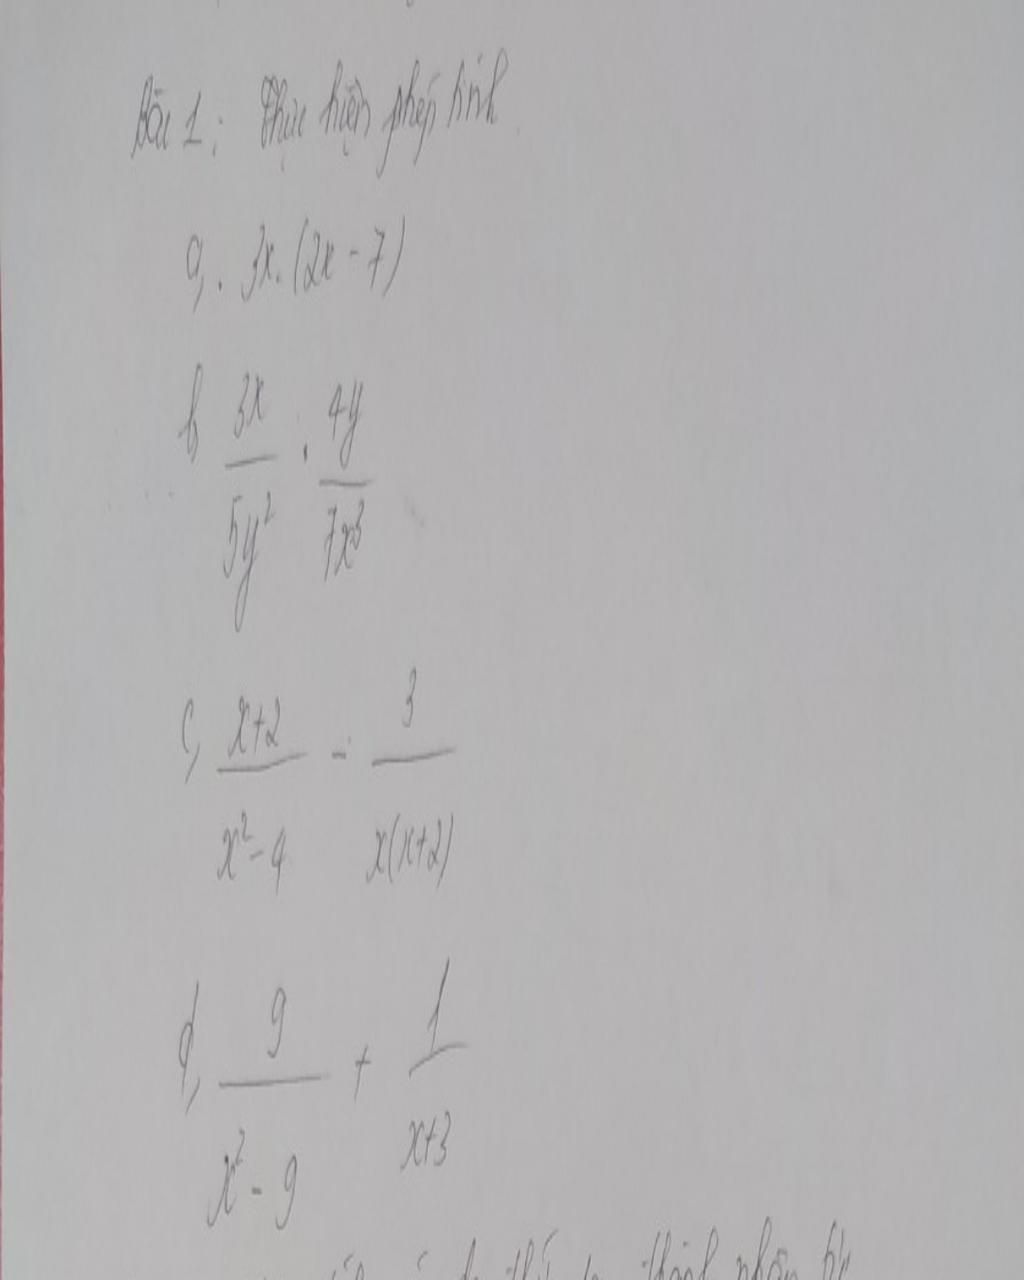 Bài 1: Thực hiện phép tính
a, . 3x.(2x - 7)
b 3x/5y² . 4y/7x³
c, x+2/x²-4 - 3/x(x+2)
d, 9/x² - 9 + 1/x+3
thành nhân tử